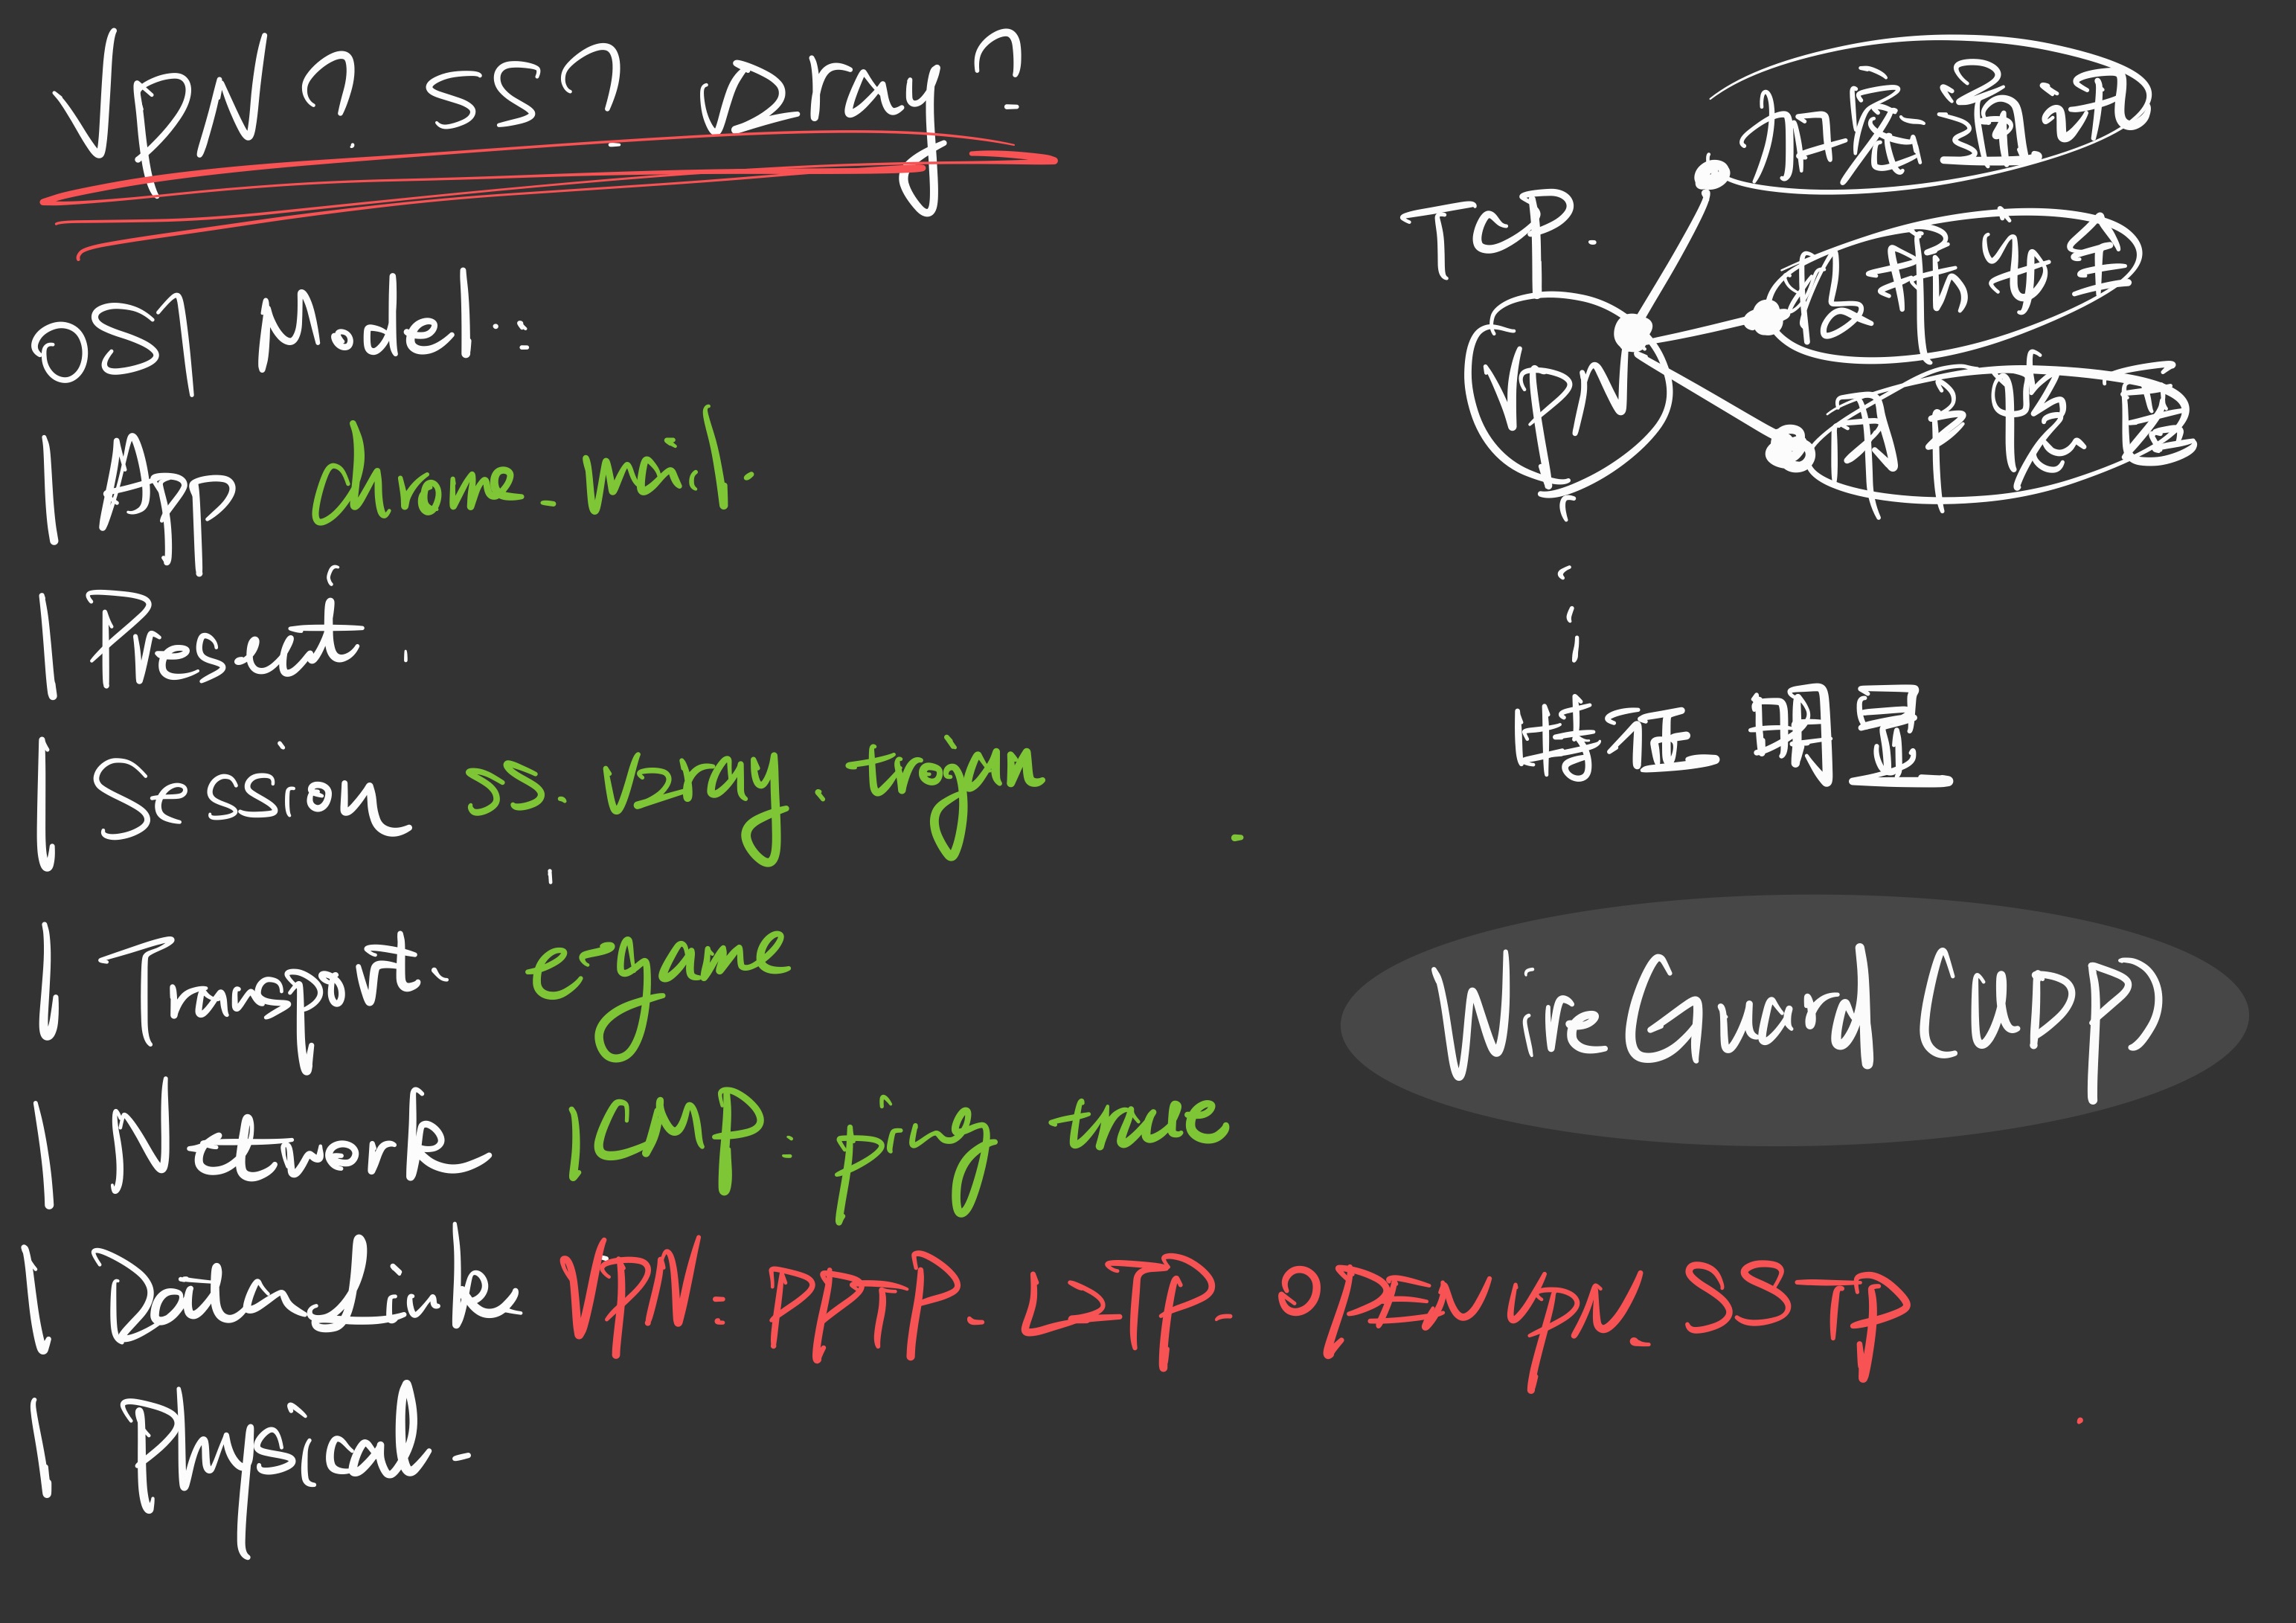 VPN? SS? V2ray?
OSI Model:
App chrome. mail.
Present.
Session ss. V2ray. trojan
Transport. e-game
Network ICMP: ping trace
Data Link VPN: PPTP. L2TP. OPENVPN. SSTP
Physical.
TCP.
VPN
加密通讯
数据安全
保护隐私
特征明显
WireGuard (UDP)